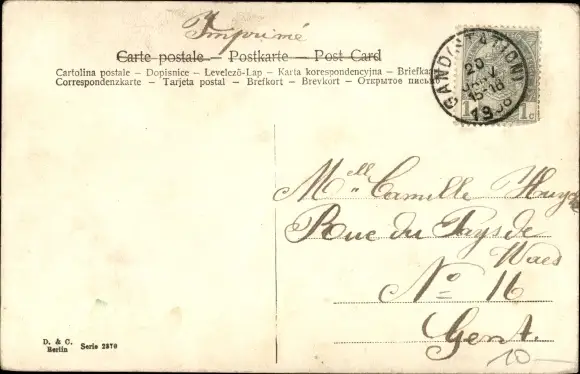 Imprimé
Carte postale. — Postkarte — Post Card
Cartolina postale — Dopisnice — Levelező-Lap — Karta korespondencyjna — Briefkaa
Correspondenzkarte — Tarjeta postal — Brefkort — Brevkort — Открытое письм
GAND (STATION)
20
1 c
Mell Camille
Rue du Pays de
Waes
No 16
Gent.
10
D. & C.
Berlin Serie 2370